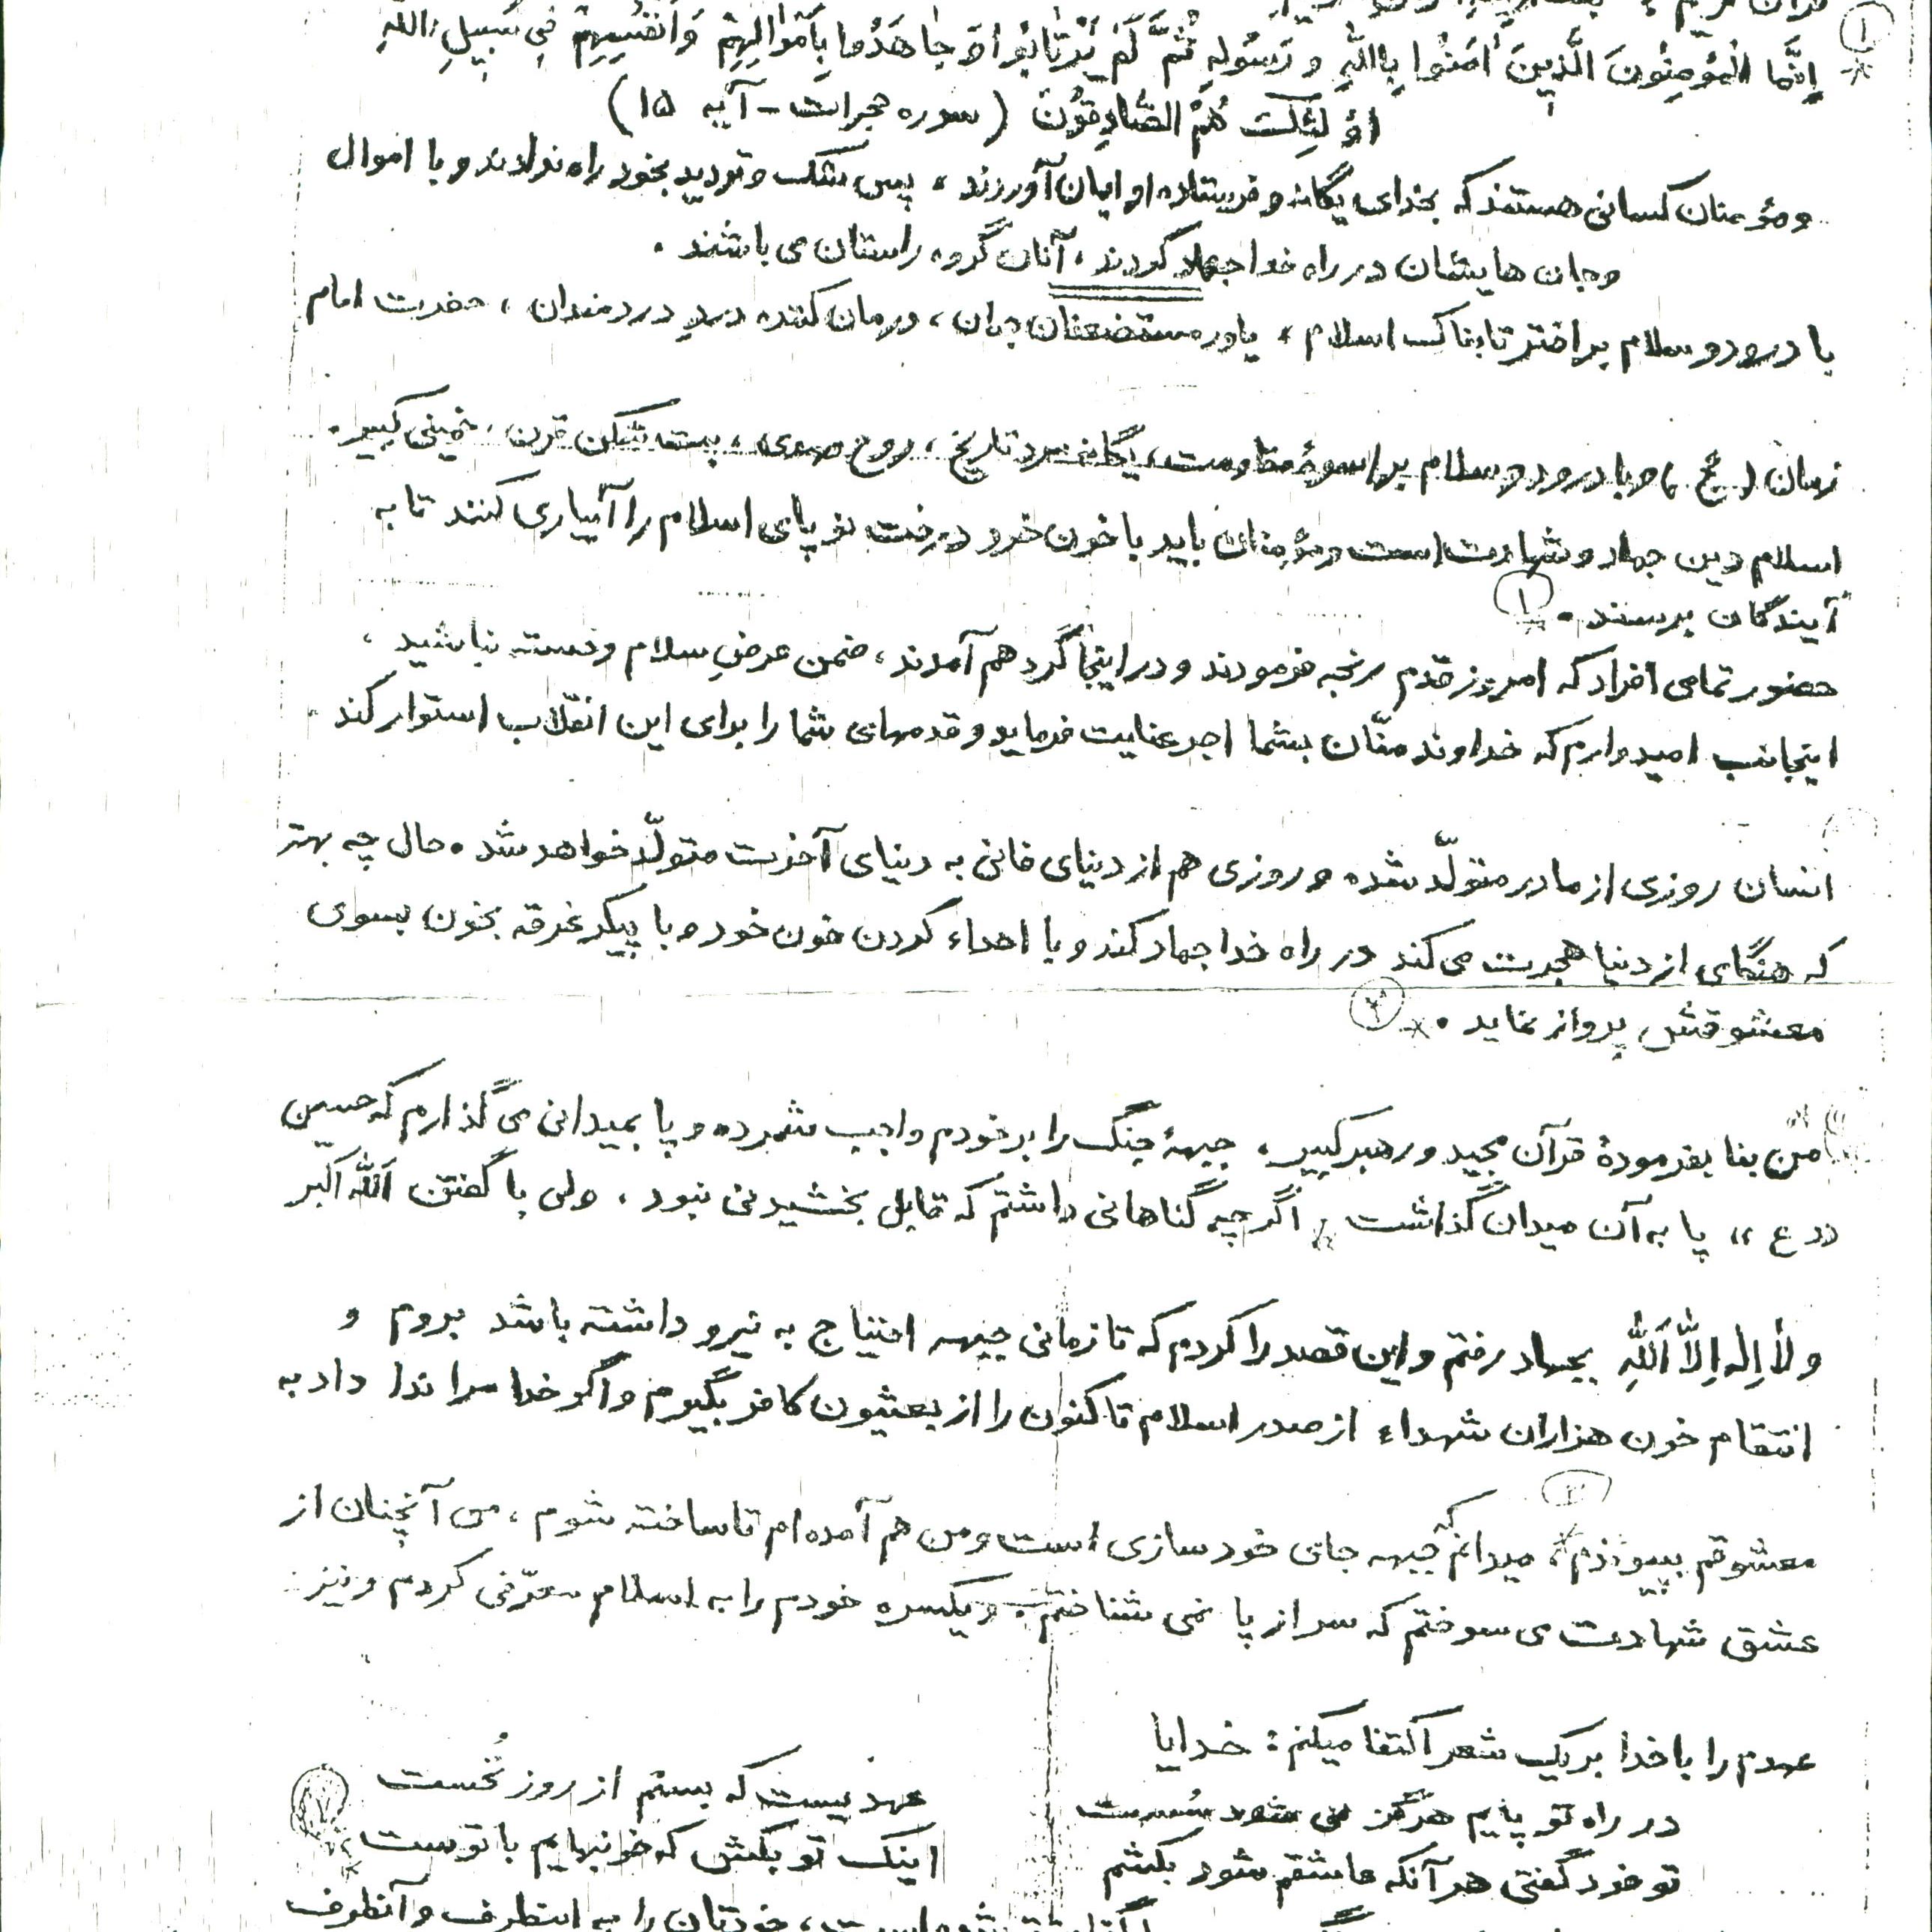 قرآن کریم
۱
إِنَّمَا الْمُؤمِنُونَ الَّذِینَ أمَنُوا بِاللّهِ و رَسُولِهِ ثُمَّ لَمْ یَرْتَابُوا وَ جاهَدُوا بِأَمْوَالِهِمْ وَأَنْفُسِهِمْ فِی سَبِیلِ اللّهِ
اؤلَئِکَ هُمُ الصَّادِقُونَ (سوره حجرات - آیه ۱۵)
و مؤمنان کسانی هستند که بخدای یگانه و فرستاده او ایمان آورند ، پس شک و تردید بخود راه ندادند و با اموال
و جان هایشان در راه خدا جهاد کردند ، آنان گروه راستان می باشند .
با درود و سلام بر اختر تابناک اسلام ، یاور مستضعفان جهان ، درمان کننده درد دردمندان ، حضرت امام
زمان (عج) و با درود و سلام بر اسوهٔ مقاومت ، یگانه مرد تاریخ ، روح مهدی ، بت شکن قرن ، خمینی کبیر .
اسلام دین جهاد و شهادت است و مؤمنان باید با خون خود درخت نو پای اسلام را آبیاری کنند تا به
آیندگان برسند . ۱
حضور تمامی افراد که امروز قدم رنجه فرمودند و در اینجا گرد هم آمدند ، ضمن عرض سلام و خسته نباشید ،
اینجانب امیدوارم که خداوند منّان بشما اجر عنایت فرماید و قدمهای شما را برای این انقلاب استوار کند .
انسان روزی از مادر متولّد شده و روزی هم از دنیای فانی به دنیای آخرت متولّد خواهد شد . حال چه بهتر
که هنگامی از دنیا هجرت می کند در راه خدا جهاد کند و با اهداء کردن خون خود و با پیکر غرقه بخون بسوی
معشوقش پرواز نماید . ۲
من بنا بفرمودهٔ قرآن مجید و رهبر کبیر ، جبههٔ جنگ را بر خودم واجب شمرده و پا بمیدانی می گذارم که حسین
«ع» پا به آن میدان گذاشت . اگر چه گناهانی داشتم که قابل بخشیدنی نبود ، ولی با گفتن اَللّه اکبر
و لا إله إلاّ اَللّهِ بجهاد رفتم و این قصد را کردم که تا زمانی جبهه احتیاج به نیرو داشته باشد بروم و
انتقام خون هزاران شهداء از صدر اسلام تا کنون را از بعثیون کافر بگیرم و اگر خدا مرا ندا داد به
معشوقم بپیوندم ، میدانم که جبهه جای خودسازی است و من هم آمده ام تا ساخته شوم ، من آنچنان از
عشق شهادت می سوختم که سر از پا نمی شناختم . و یکسره خودم را به اسلام معرّفی کردم و نیز
عهدم را با خدا بر یک شعر اکتفا میکنم : خدایا
در راه تو پایم هرگز نمی شود سُست    عهدیست که بستم از روز نُخست
تو خود گفتی هر آنکه عاشقم شود بکشم    اینک تو بکش که خونبهایم با توست
خودتان را به اینطرف و آنطرف